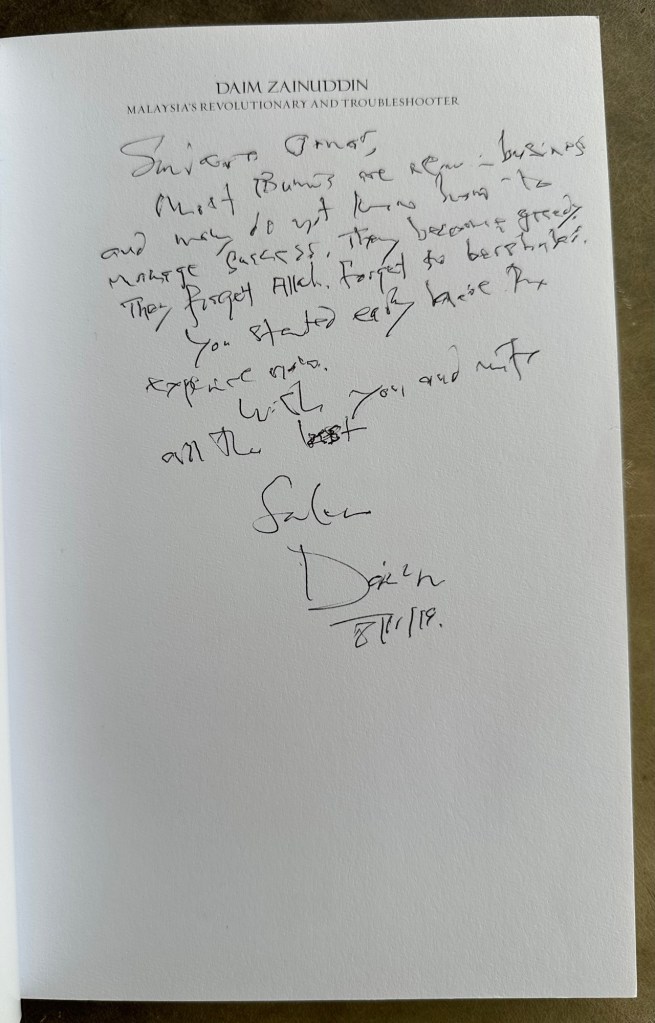 DAIM ZAINUDDIN
MALAYSIA'S REVOLUTIONARY AND TROUBLESHOOTER
Omar,
Most Bumis are new in business
and many do not know how to
manage success. They become greedy.
They forget Allah. Forget to
You started early have the
now.
with you and
all the best
Salam
Daim
8/11/19.